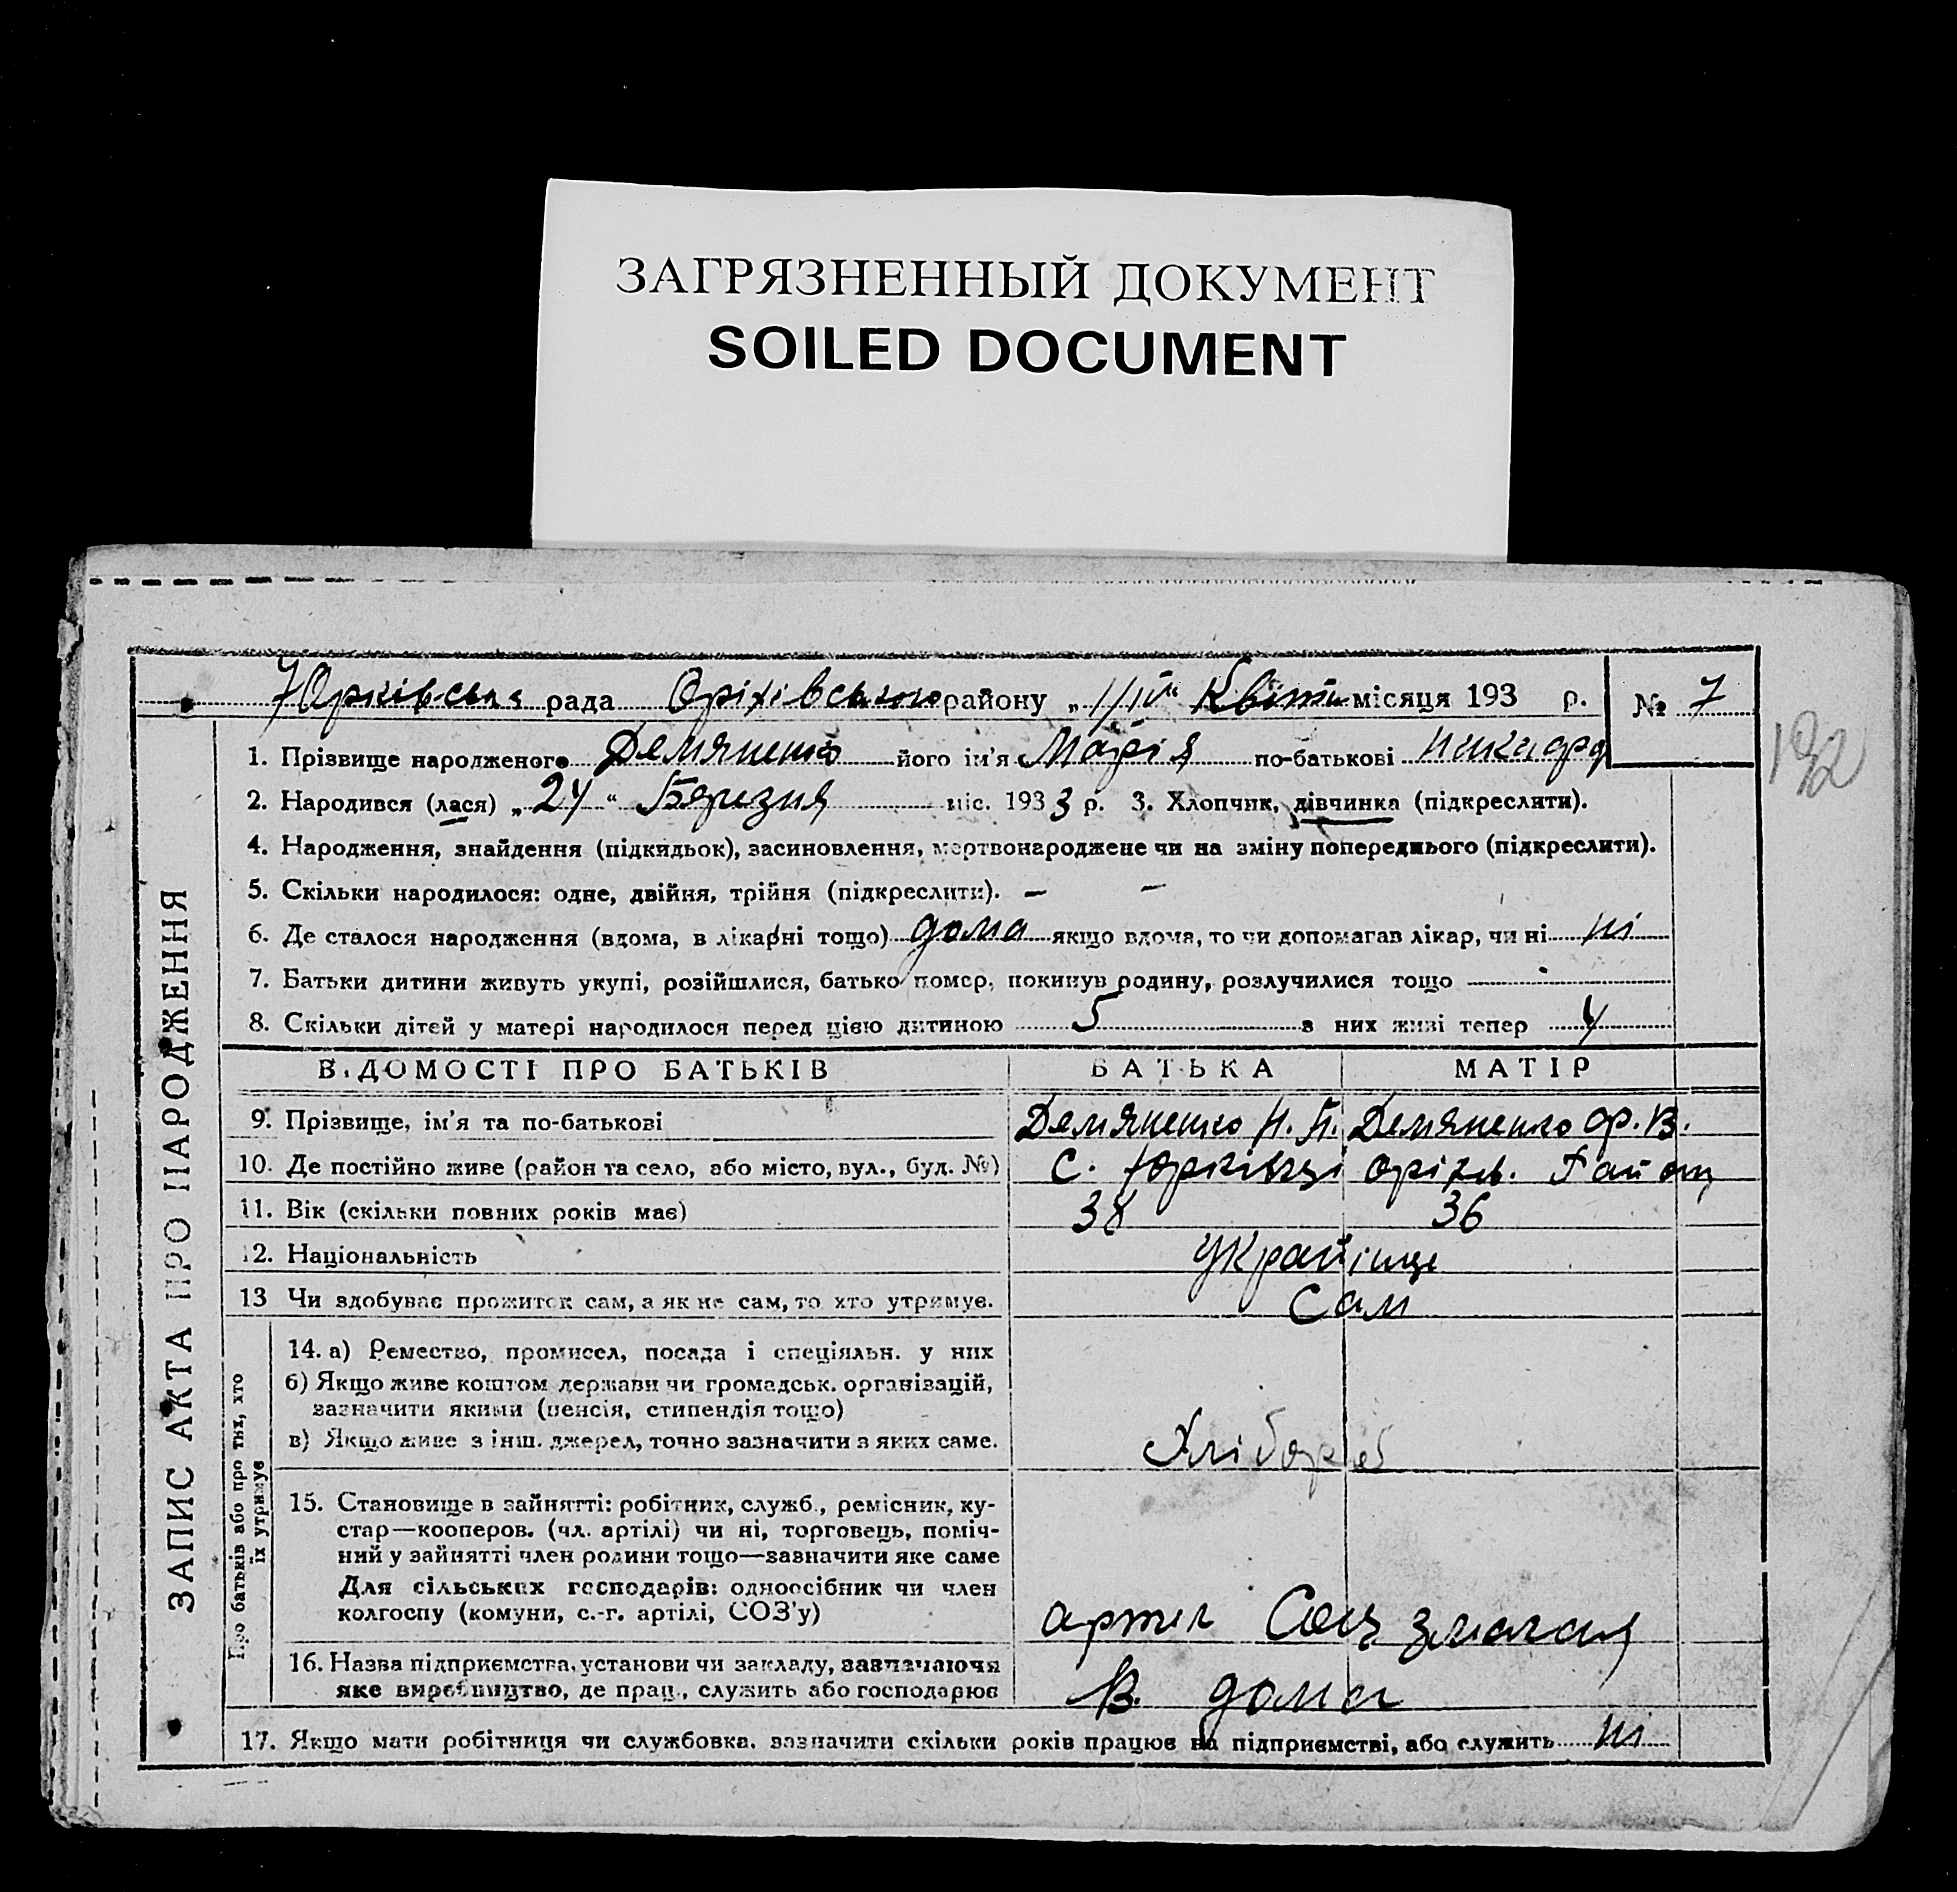 ЗАГРЯЗНЕННЫЙ ДОКУМЕНТ
SOILED DOCUMENT
Юрківська рада Оріхівського району „11/IV“ Квітн місяця 193 р. № 7
192
1. Прізвище народженого Демяненко його ім'я Марія по-батькові Никандр
2. Народився (лася) „24“ Березня міс. 1933 р. 3. Хлопчик, дівчинка (підкреслити).
4. Народження, знайдення (підкидьок), засиновлення, мертвонароджене чи на зміну попереднього (підкреслити).
5. Скільки народилося: одне, двійня, трійня (підкреслити). — —
6. Де сталося народження (вдома, в лікарні тощо) дома якщо вдома, то чи допомагав лікар, чи ні ні
7. Батьки дитини живуть укупі, розійшлися, батько помер, покинув родину, розлучилися тощо
8. Скільки дітей у матері народилося перед цією дитиною 5 з них живі тепер 4
ЗАПИС АКТА ПРО НАРОДЖЕННЯ
ВІДОМОСТІ ПРО БАТЬКІВ БАТЬКА МАТІР
9. Прізвище, ім'я та по-батькові Демяненко Н. П. Демяненко Ф. В.
10. Де постійно живе (район та село, або місто, вул., буд. №) с. Юрківці Оріхів. Район
11. Вік (скільки повних років має) 38 36
12. Національність Українці
13 Чи здобуває прожиток сам, а як не сам, то хто утримує. Сам
Про батьків або про тих, хто
їх утримує
14. а) Ремество, промисел, посада і спеціяльн. у них
б) Якщо живе коштом держави чи громадськ. організацій,
зазначити якими (пенсія, стипендія тощо)
в) Якщо живе з інш. джерел, точно зазначити з яких саме. Хлібороб
15. Становище в зайнятті: робітник, служб., ремісник, ку-
стар—кооперов. (чл. артілі) чи ні, торговець, поміч-
ний у зайнятті член родини тощо—зазначити яке саме
Для сільських господарів: одноосібник чи член
колгоспу (комуни, с.-г. артілі, СОЗ'у) артіл Соц змаганя
16. Назва підприємства, установи чи закладу, зазначаючи
яке виробництво, де прац., служить або господарює В. дома
17. Якщо мати робітниця чи службовка, зазначити скільки років працює на підприємстві, або служить ні